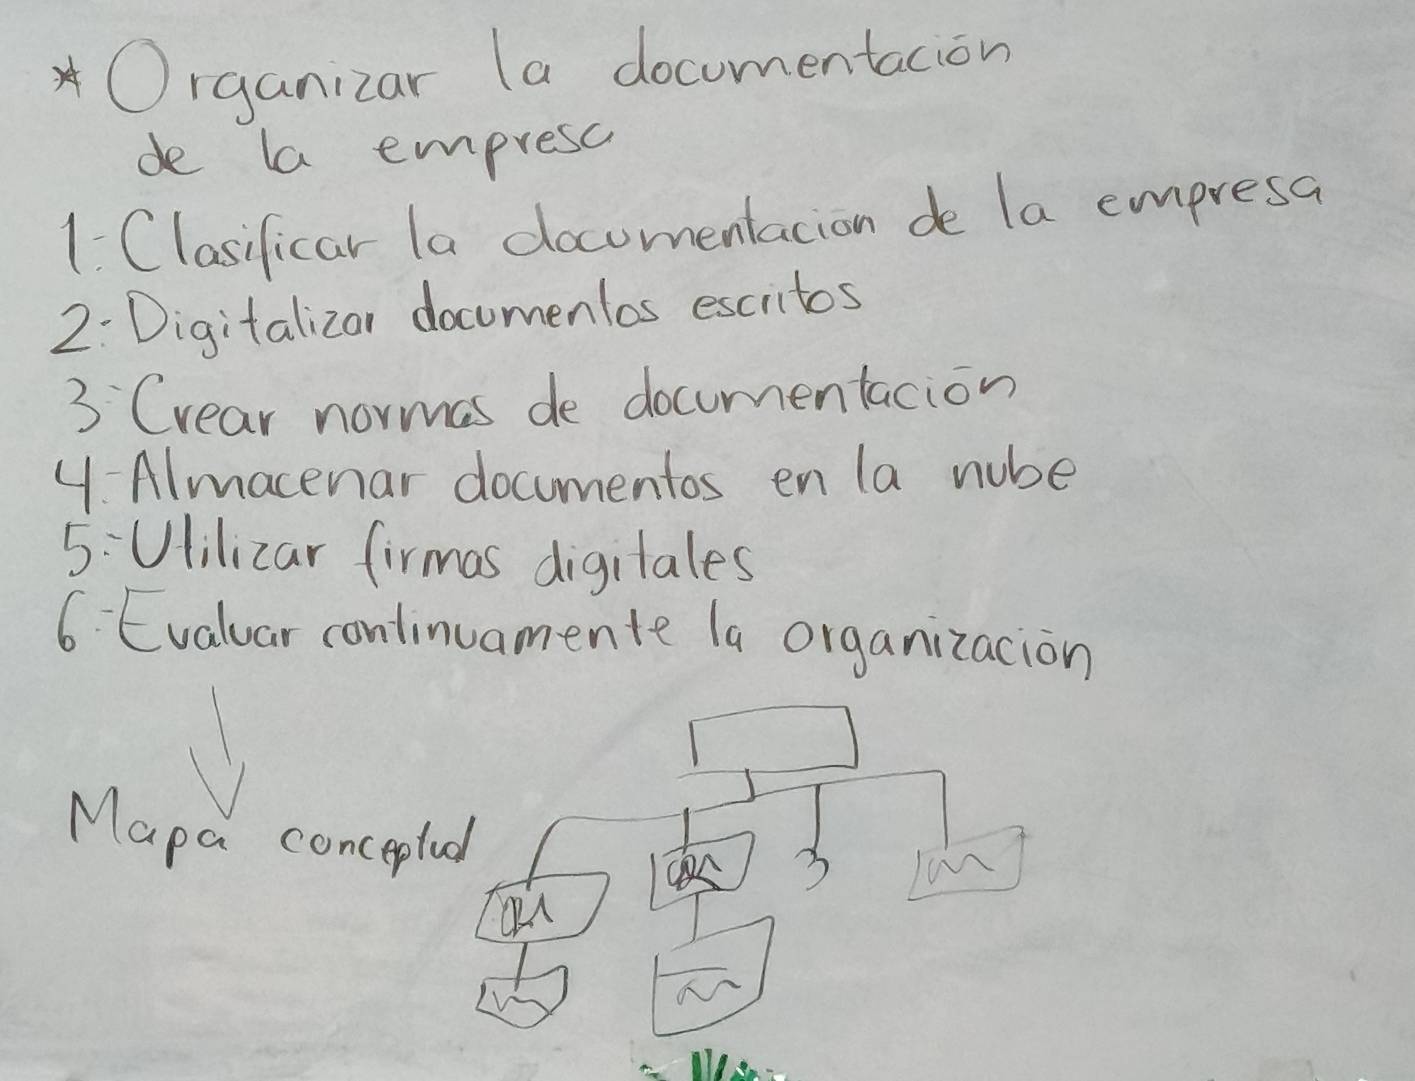 * Organizar la documentación
de la empresa
1.- Clasificar la documentación de la empresa
2.- Digitalizar documentos escritos
3.- Crear normas de documentación
4.- Almacenar documentos en la nube
5.- Utilizar firmas digitales
6.- Evaluar continuamente la organización
Mapa conceptual
3